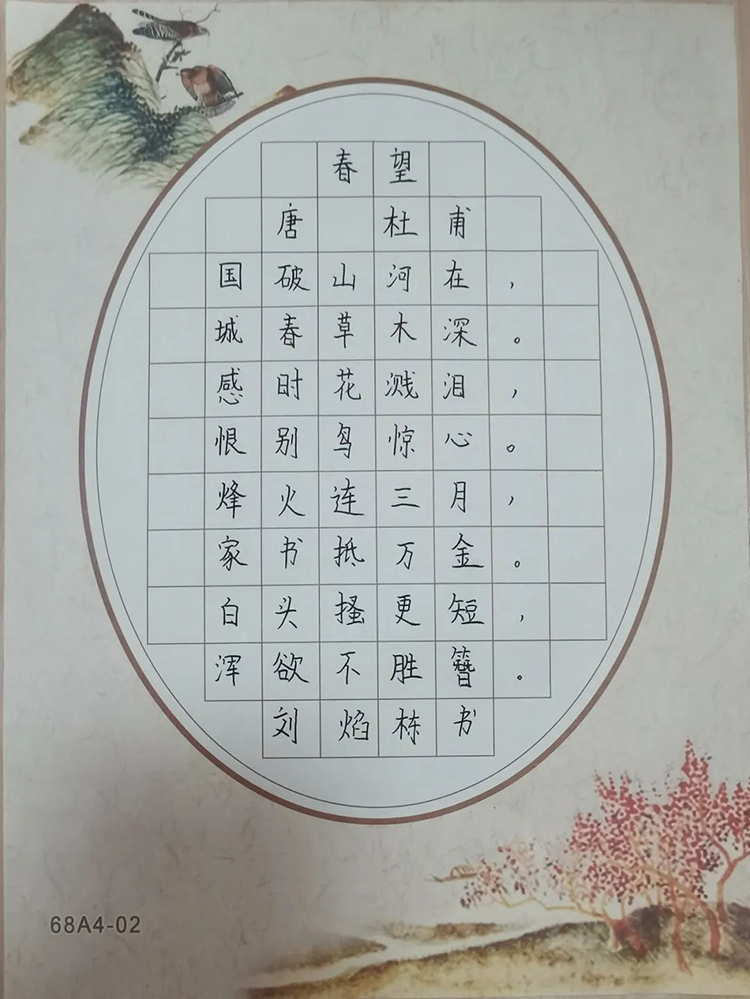 春望
唐 杜甫
国破山河在，
城春草木深。
感时花溅泪，
恨别鸟惊心。
烽火连三月，
家书抵万金。
白头搔更短，
浑欲不胜簪。
刘焰栋书
68A4-02